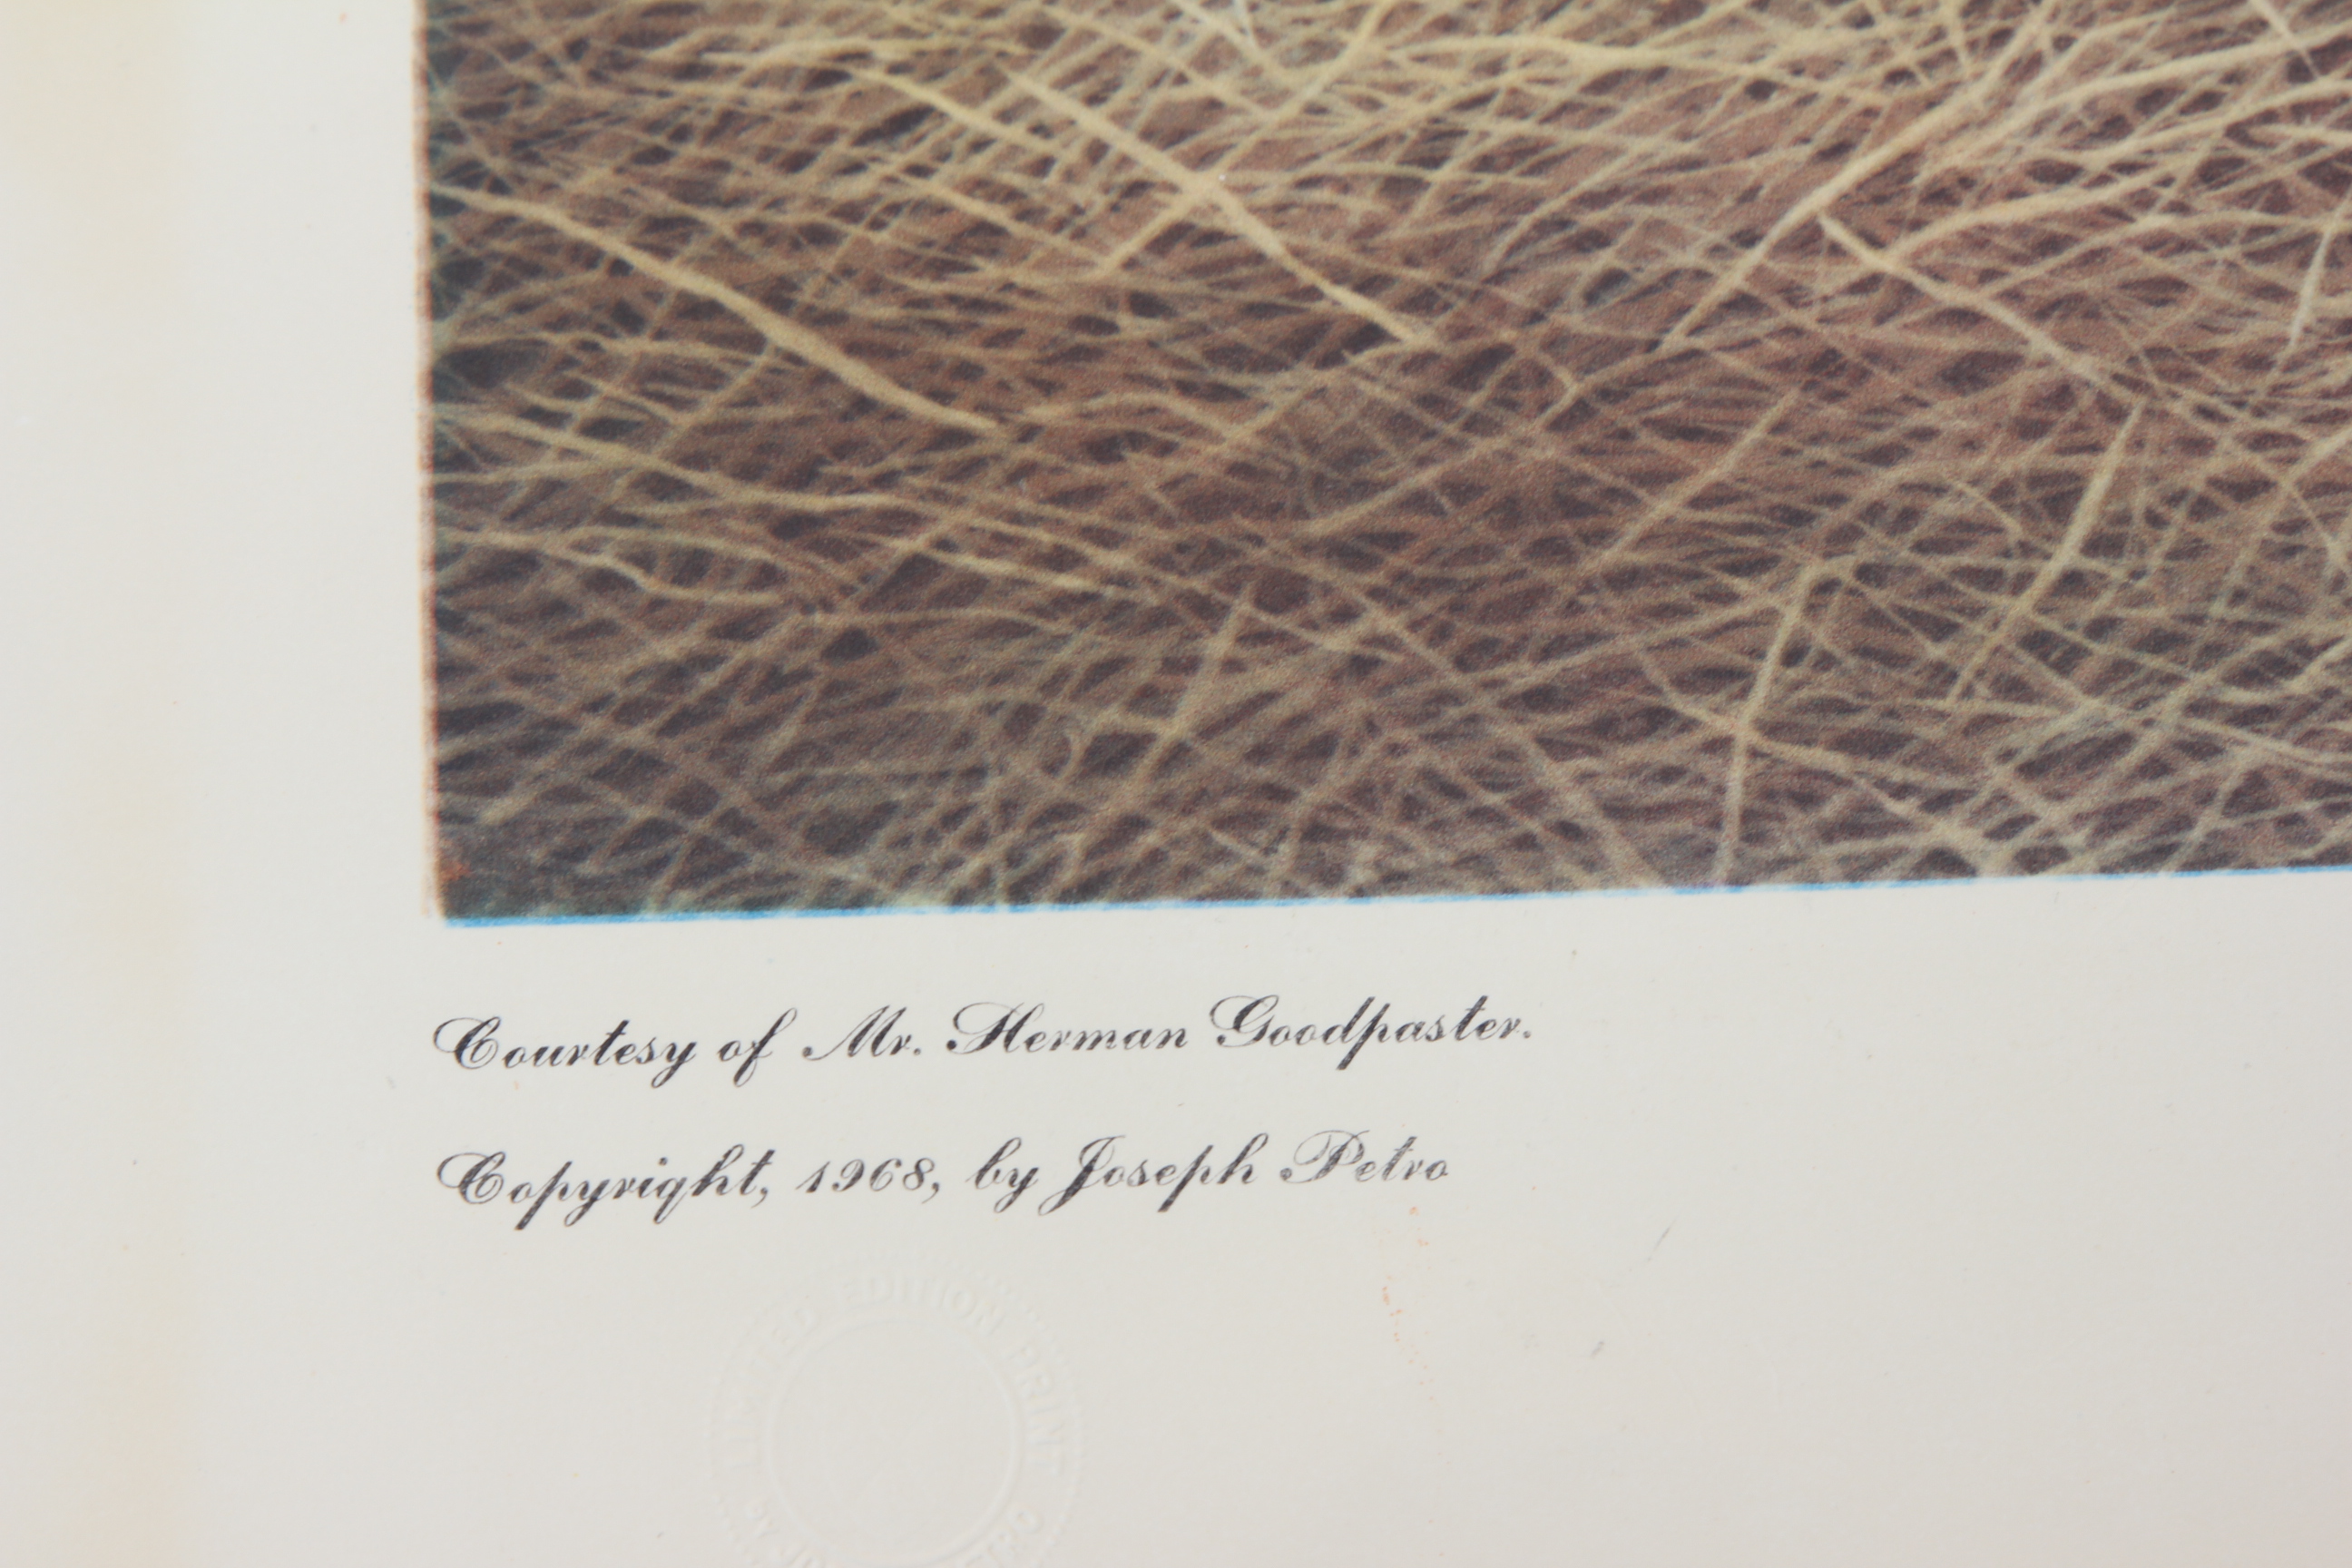 Courtesy of Mr. Herman Goodpaster.
Copyright, 1968, by Joseph Petro
LIMITED EDITION PRINT